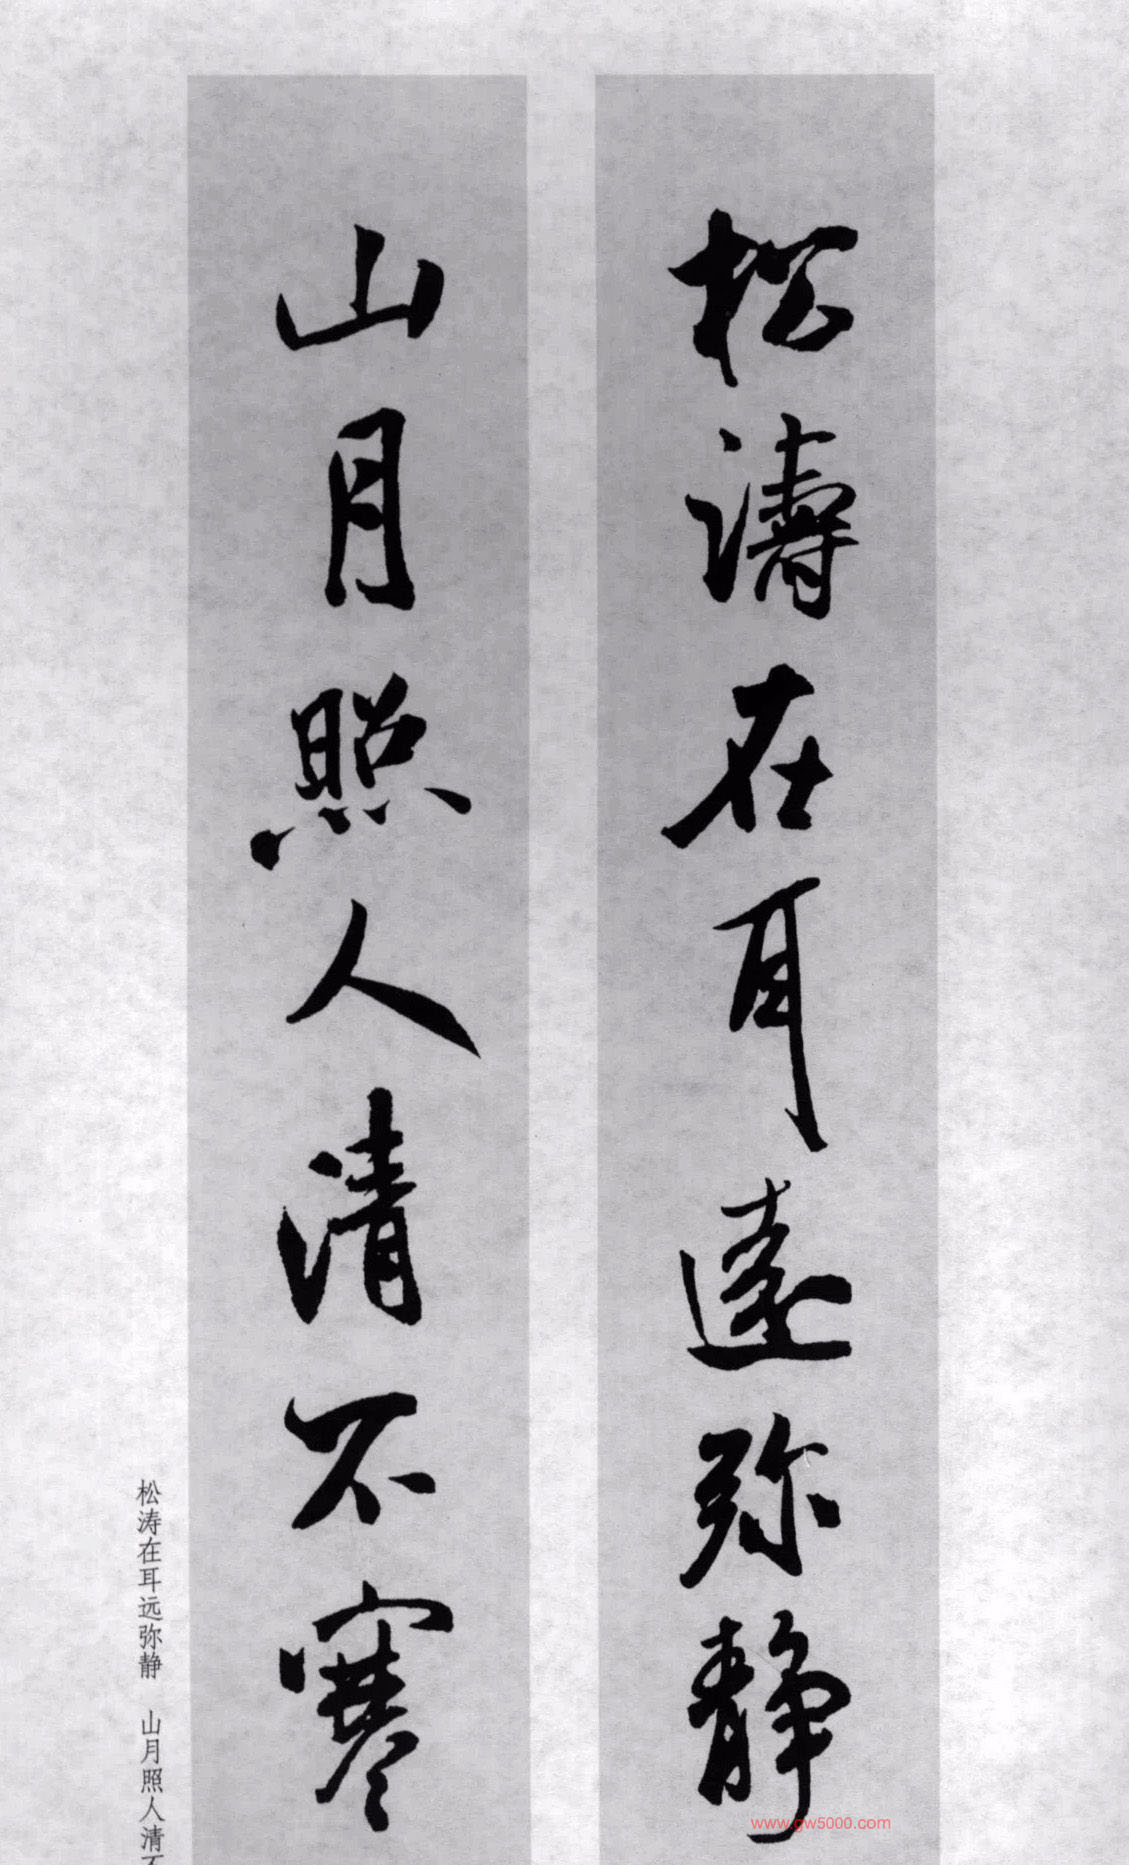 松濤在耳遠弥静
山月照人清不寒
松涛在耳远弥静 山月照人清不
www.gw5000.com